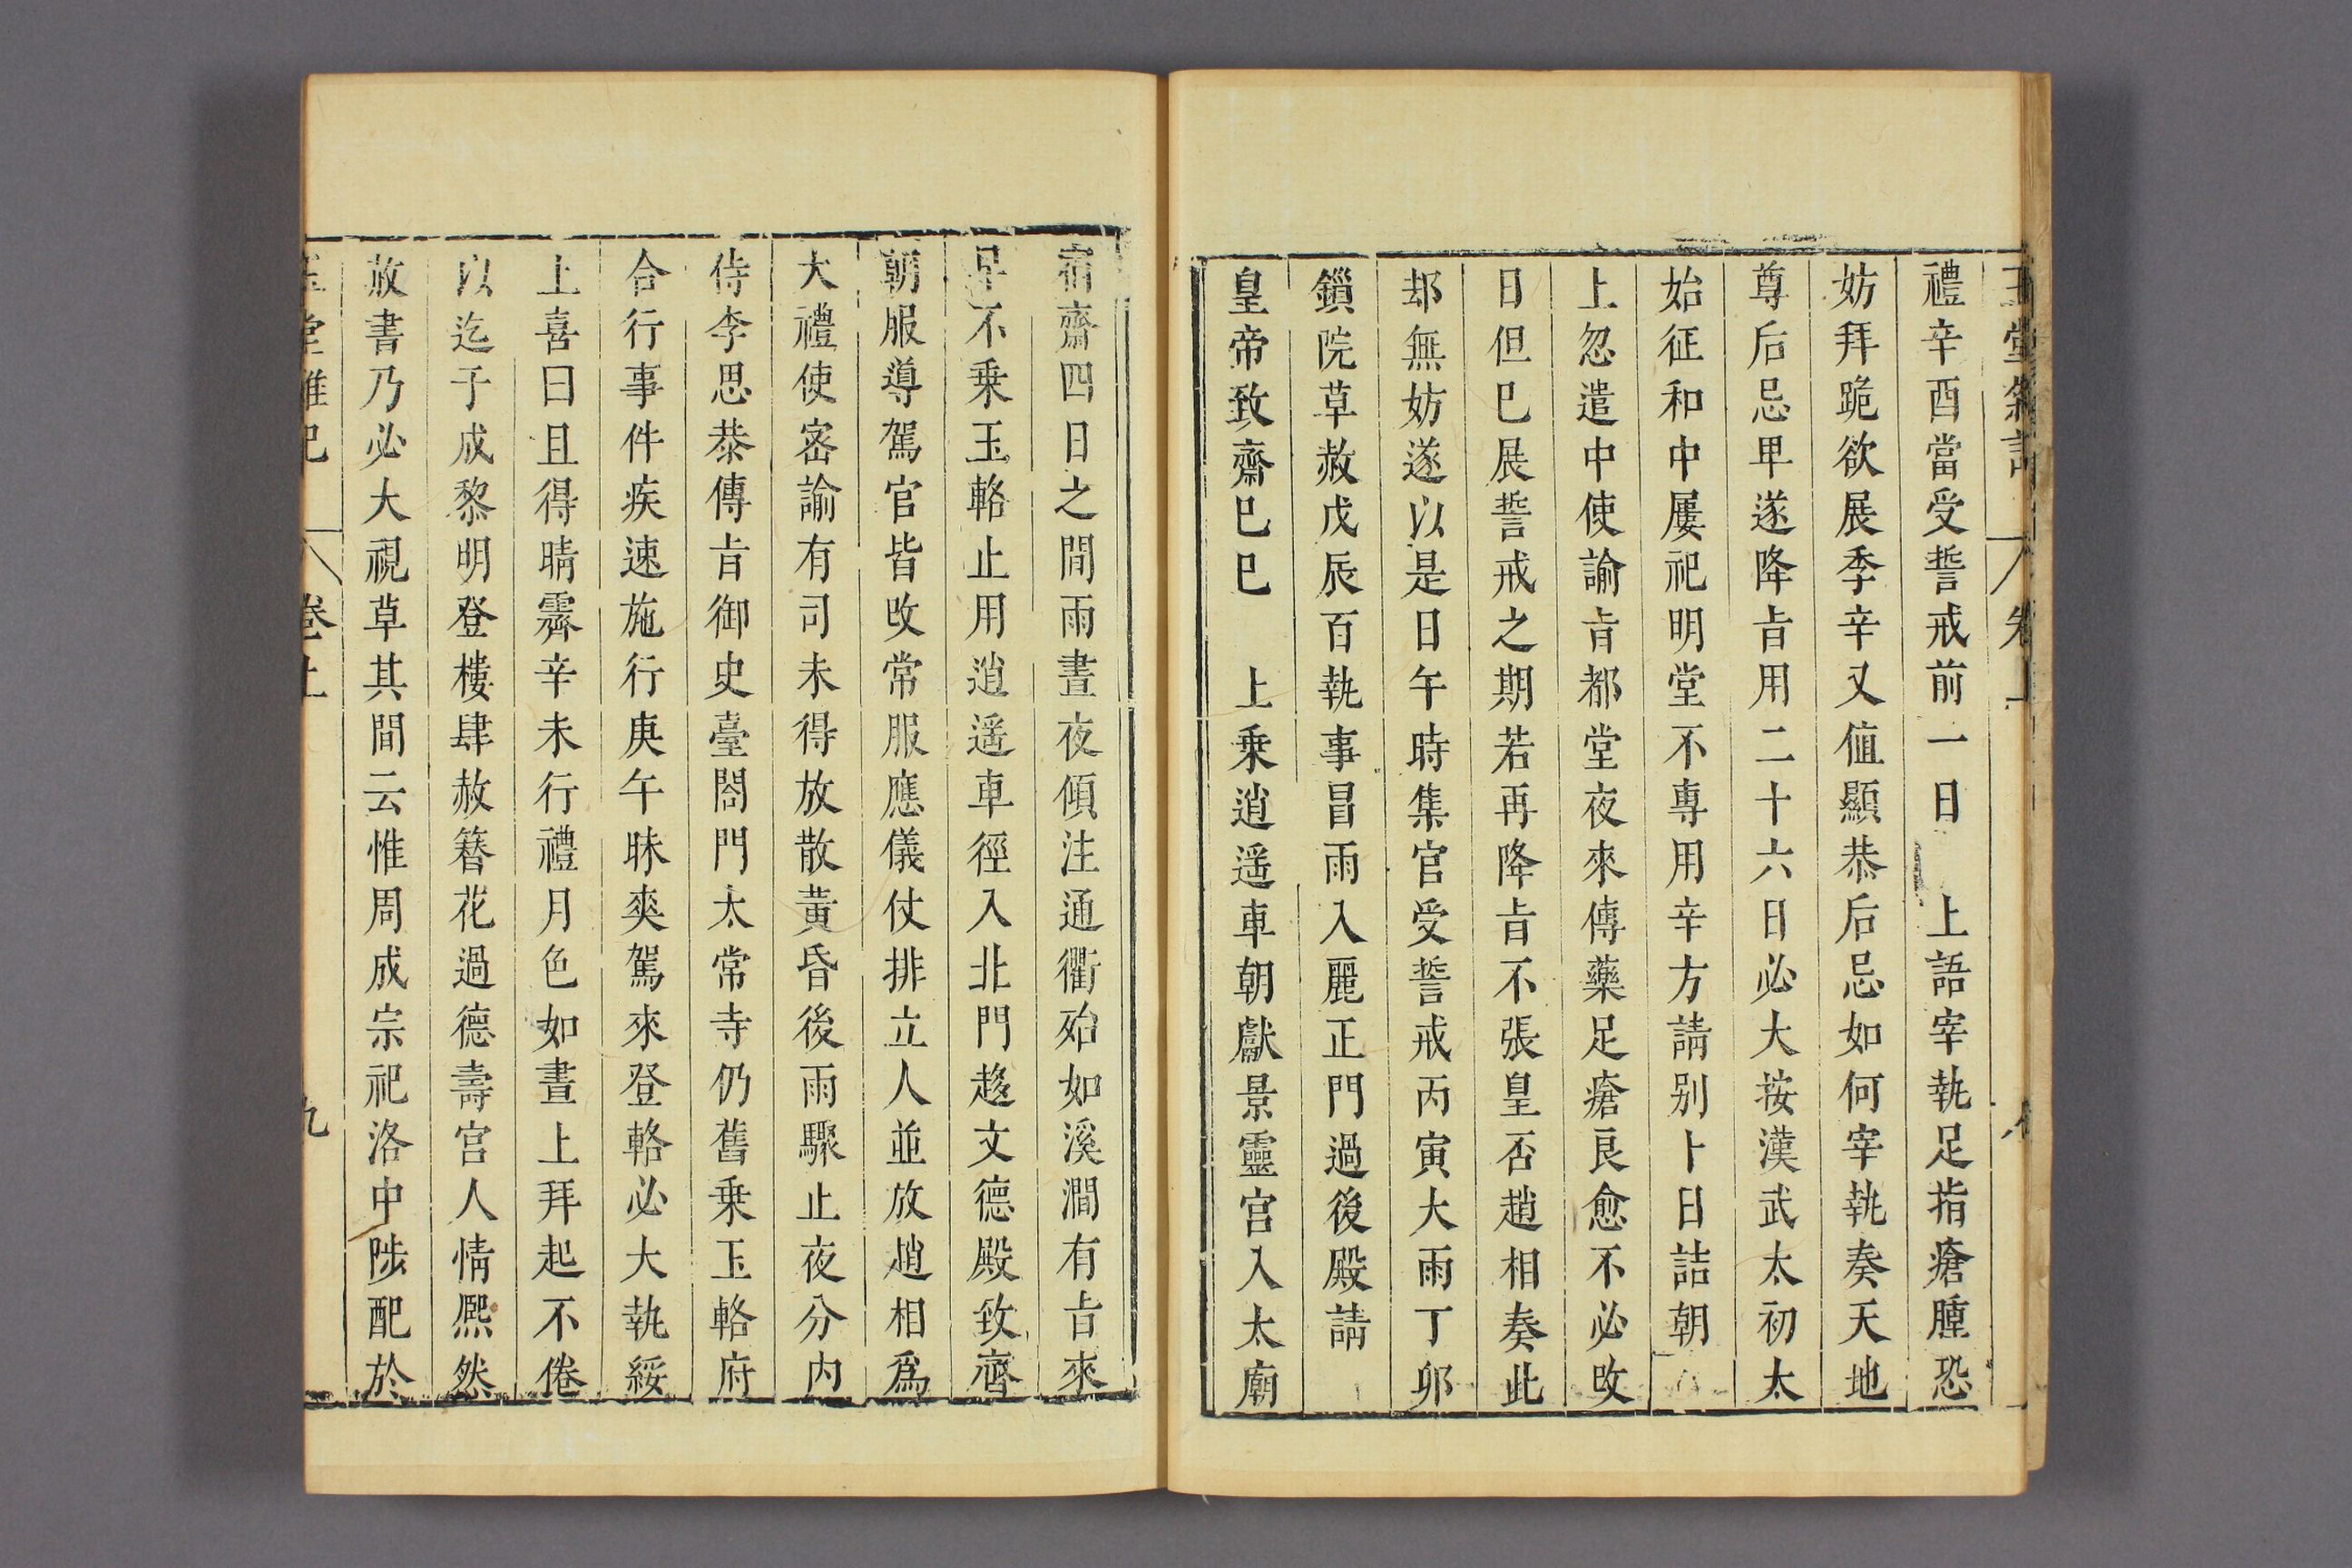 禮辛酉當受誓戒前一日　上語宰執足指瘡腫恐
妨拜跪欲展季辛又值顯恭后忌如何宰執奏天地
尊后忌卑遂降㫖用二十六日必大按漢武太初太
始征和中屢祀明堂不專用辛方請别卜日詰朝
上忽遣中使諭㫖都堂夜來傳藥足瘡良愈不必改
日但已展誓戒之期若再降㫖不張皇否趙相奏此
却無妨遂以是日午時集官受誓戒丙寅大雨丁卯
鎻院草赦戊辰百執事冒雨入麗正門過後殿請
皇帝致齋巳巳　上乗逍遥車朝獻景靈宫入太廟
宿齋四日之間雨晝夜傾注通衢殆如溪澗有㫖來
早不乗玉輅止用逍遥車徑入北門趍文德殿致齊
朝服導駕官皆改常服應儀仗排立人並放趙相爲
大禮使密諭有司未得放散黄昏後雨驟止夜分内
侍李思恭傳㫖御史臺閤門太常寺仍舊乗玉輅府
合行事件疾速施行庚午昧爽駕來登輅必大執綏
上喜曰且得晴霽辛未行禮月色如晝上拜起不倦
以迄于成黎明登樓肆赦簪花過德壽宫人情熈然
赦書乃必大視草其間云惟周成宗祀洛中陟配於
玉堂雜記　卷上　九